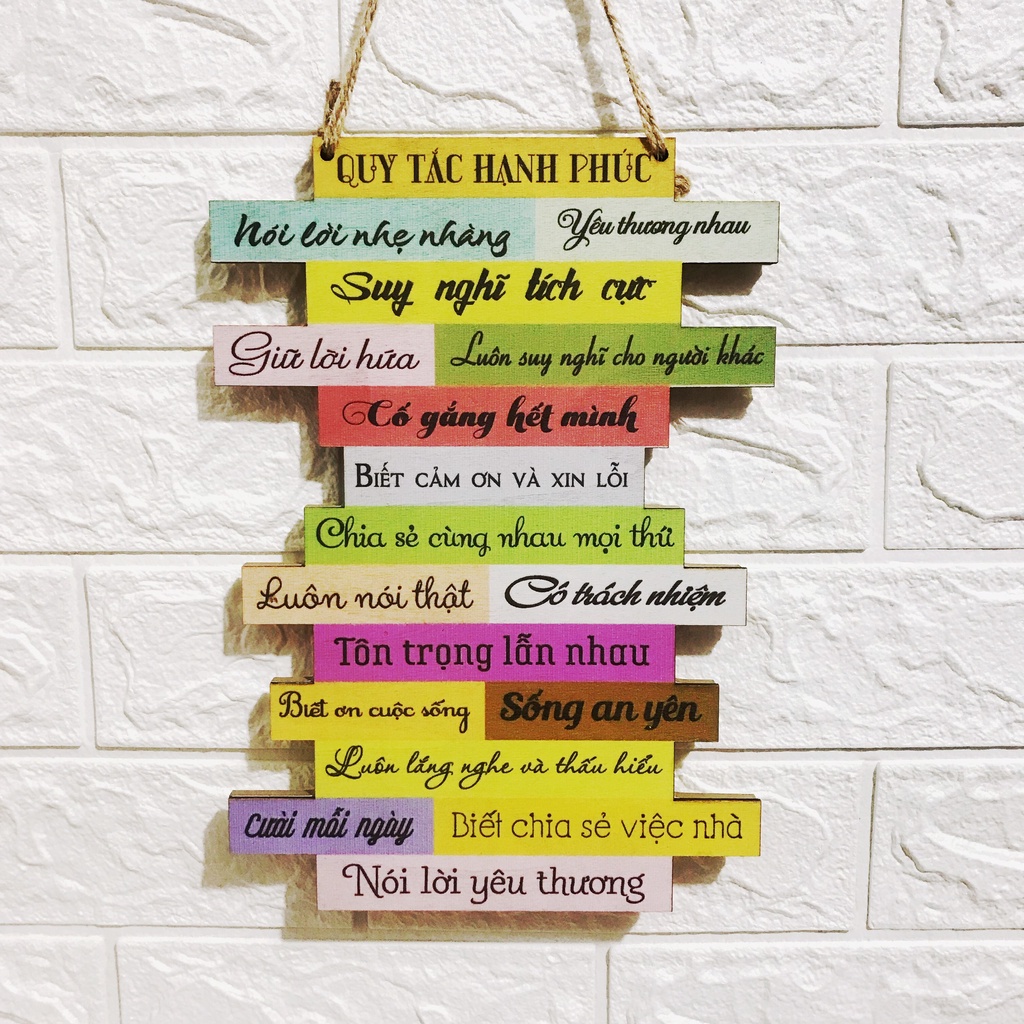 QUY TẮC HẠNH PHÚC
Nói lời nhẹ nhàng
Yêu thương nhau
Suy nghĩ tích cực
Giữ lời hứa
Luôn suy nghĩ cho người khác
Cố gắng hết mình
BIẾT CẢM ƠN VÀ XIN LỖI
Chia sẻ cùng nhau mọi thứ
Luôn nói thật
Có trách nhiệm
Tôn trọng lẫn nhau
Biết ơn cuộc sống
Sống an yên
Luôn lắng nghe và thấu hiểu
Cười mỗi ngày
Biết chia sẻ việc nhà
Nói lời yêu thương